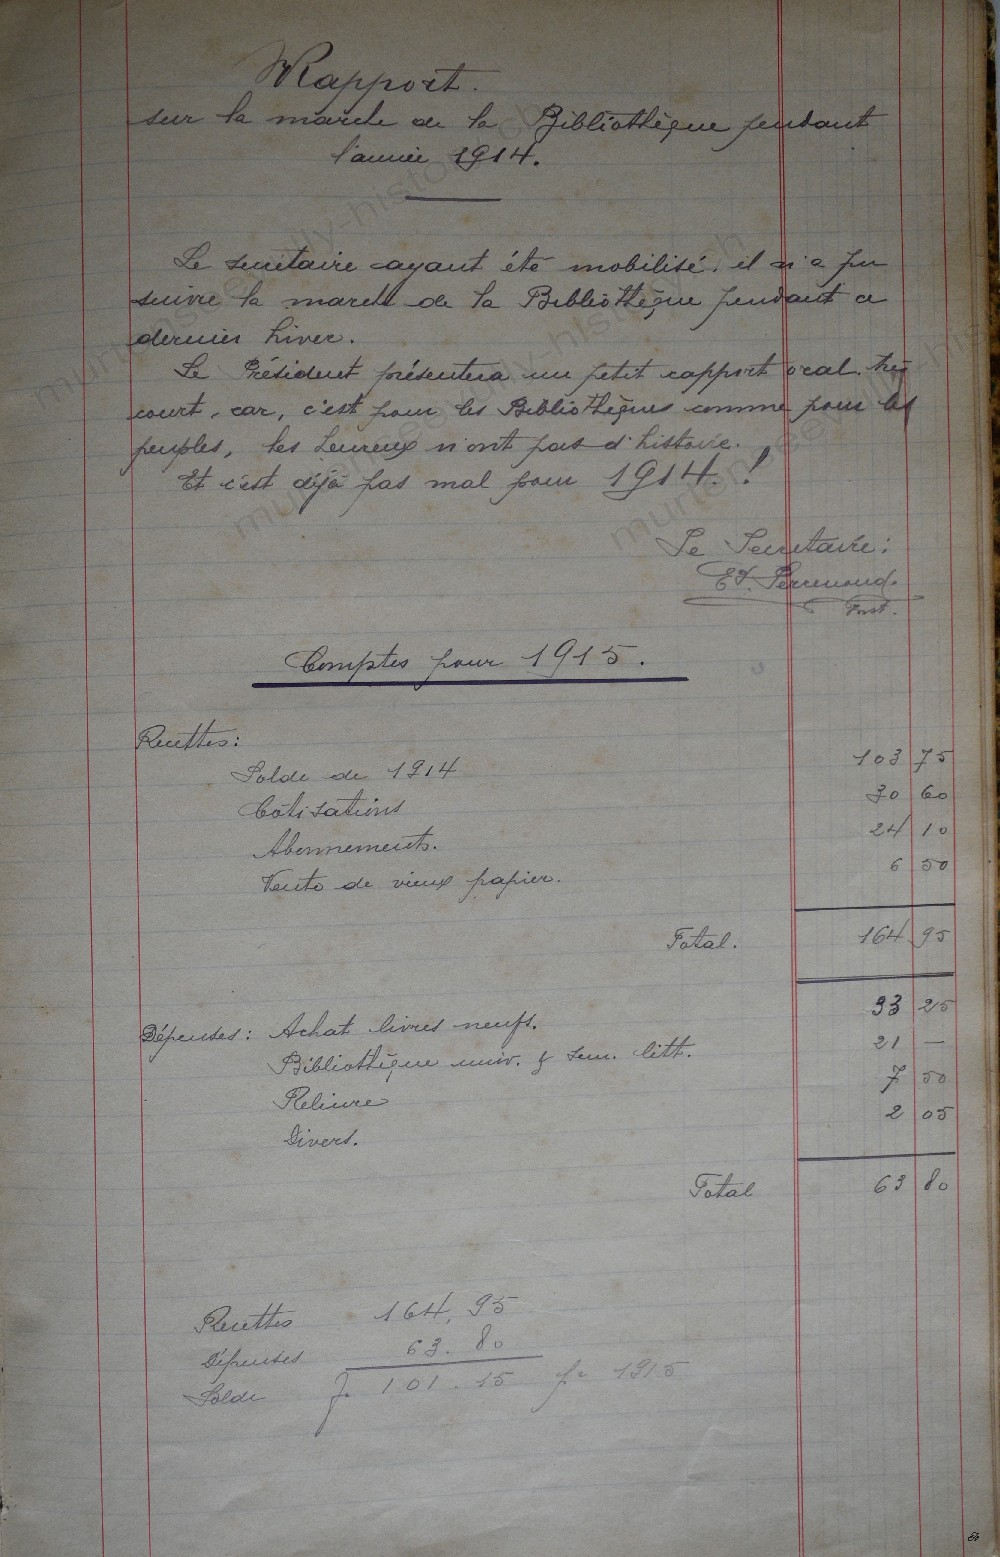 Rapport.
sur la marche de la Bibliothèque pendant
l'année 1914.
Le secrétaire ayant été mobilisé, il n'a pu
suivre la marche de la Bibliothèque pendant ce
dernier hiver.
Le Président présentera un petit rapport oral. très
court, car, c'est pour les Bibliothèques comme pour les
peuples, les heureux n'ont pas d'histoire.
Et c'est déjà pas mal pour 1914. !
Le Secrétaire:
Ed. Perrenoud.
Comptes pour 1915.
Recettes:
Solde de 1914 103 75
Cotisations 30 60
Abonnements. 24 10
Vente de vieux papier. 6 50
Total. 164 95
Dépenses: Achat livres neufs. 33 25
Bibliothèque univ. & Sem. litt. 21 —
Reliure 7 50
Divers. 2 05
Total 63 80
Recettes 164,95
Dépenses 63.80
Solde fr 101.15 pr 1915
murtenseevilly-history.ch
murtenseevilly-history.ch
murtenseevilly-history.ch